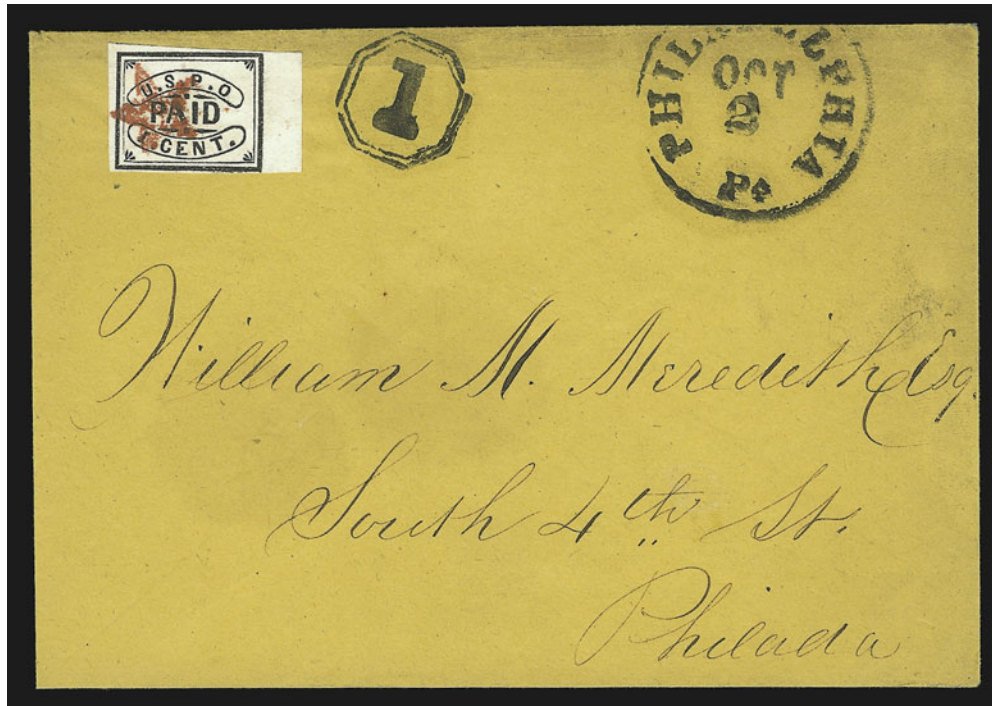 U.S.P.O
PAID
1 CENT.
1
PHILADELPHIA
OCT
2
Pa
William M. Meredith Esq.
South 4th St.
Philada